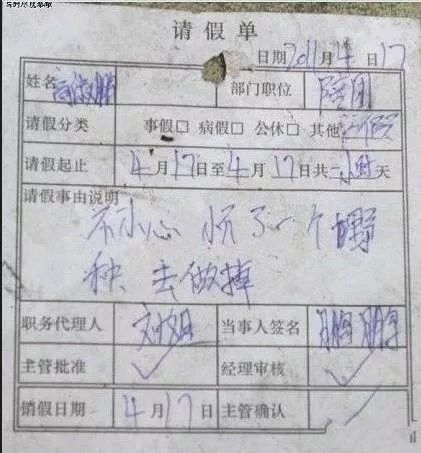 请假单
日期2011年4日17
姓名 部门职位
请假分类 事假□ 病假□ 公休□ 其他
请假起止 4月17日至4月17日共一小时天
请假事由说明
不小心 怀了一个野
种 去做掉
职务代理人 当事人签名
主管批准 ✓ 经理审核 ✓
销假日期 4月17日 主管确认 ✓